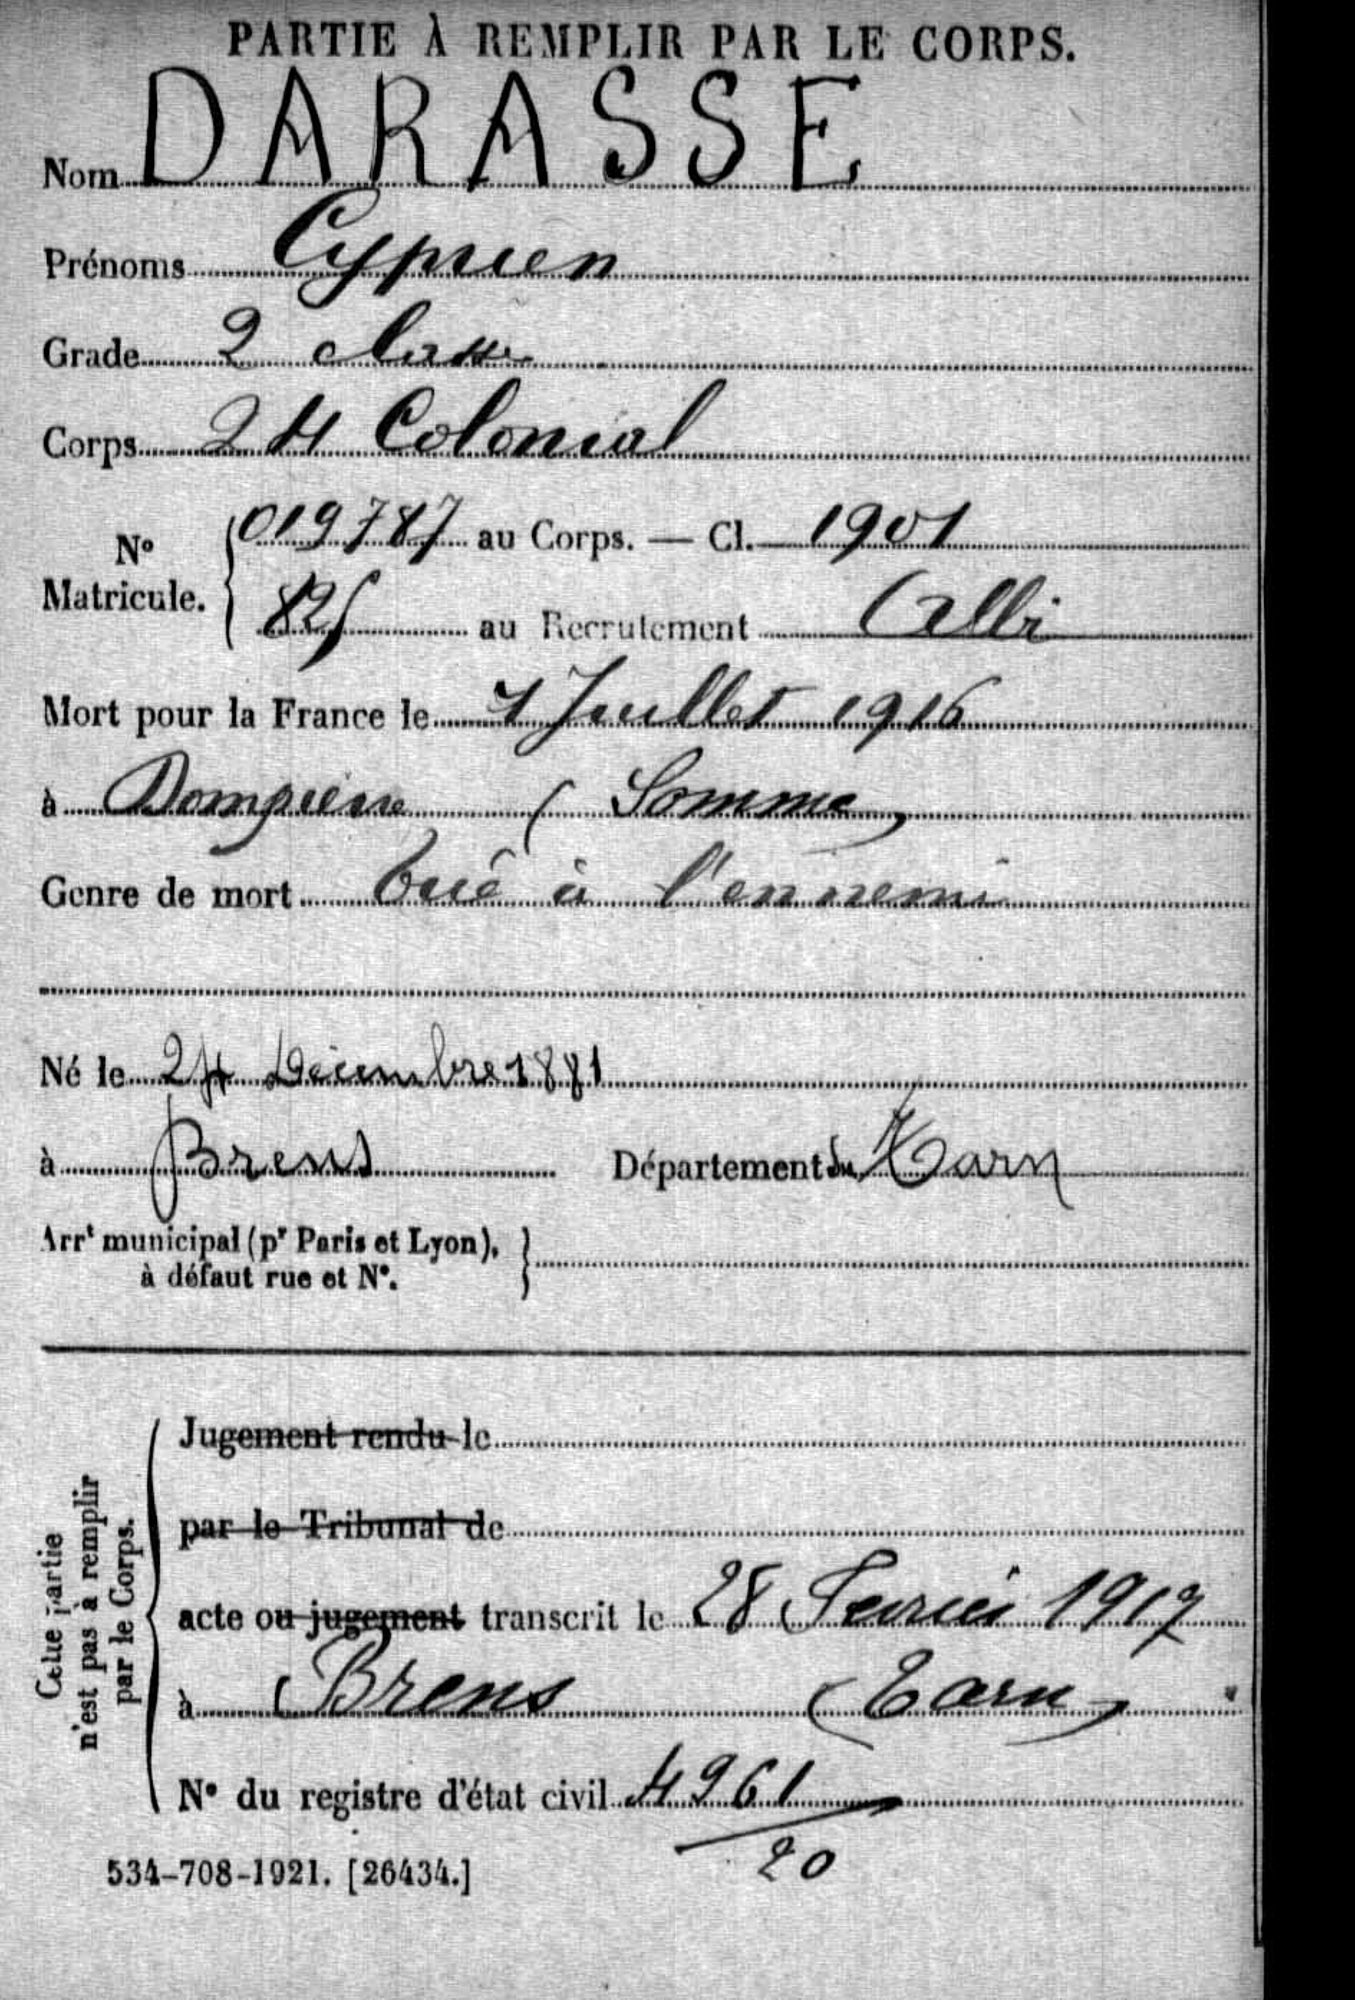 PARTIE À REMPLIR PAR LE CORPS.
Nom DARASSE
Prénoms Cyprien
Grade 2 classe
Corps 24 Colonial
N° Matricule. 019787 au Corps. — Cl. 1901
825 au Recrutement Albi
Mort pour la France le Juillet 1916
à Dompierre (Somme)
Genre de mort tué à l'ennemi
Né le 24 Décembre 1881
à Brens Département du Tarn
Arrt municipal (pr Paris et Lyon),
à défaut rue et N°.
Jugement rendu le
par le Tribunal de
acte ou jugement transcrit le 28 Février 1917
à Brens (Tarn)
N° du registre d'état civil 4961
20
Cette partie
n'est pas à remplir
par le Corps.
534-708-1921. [26434.]